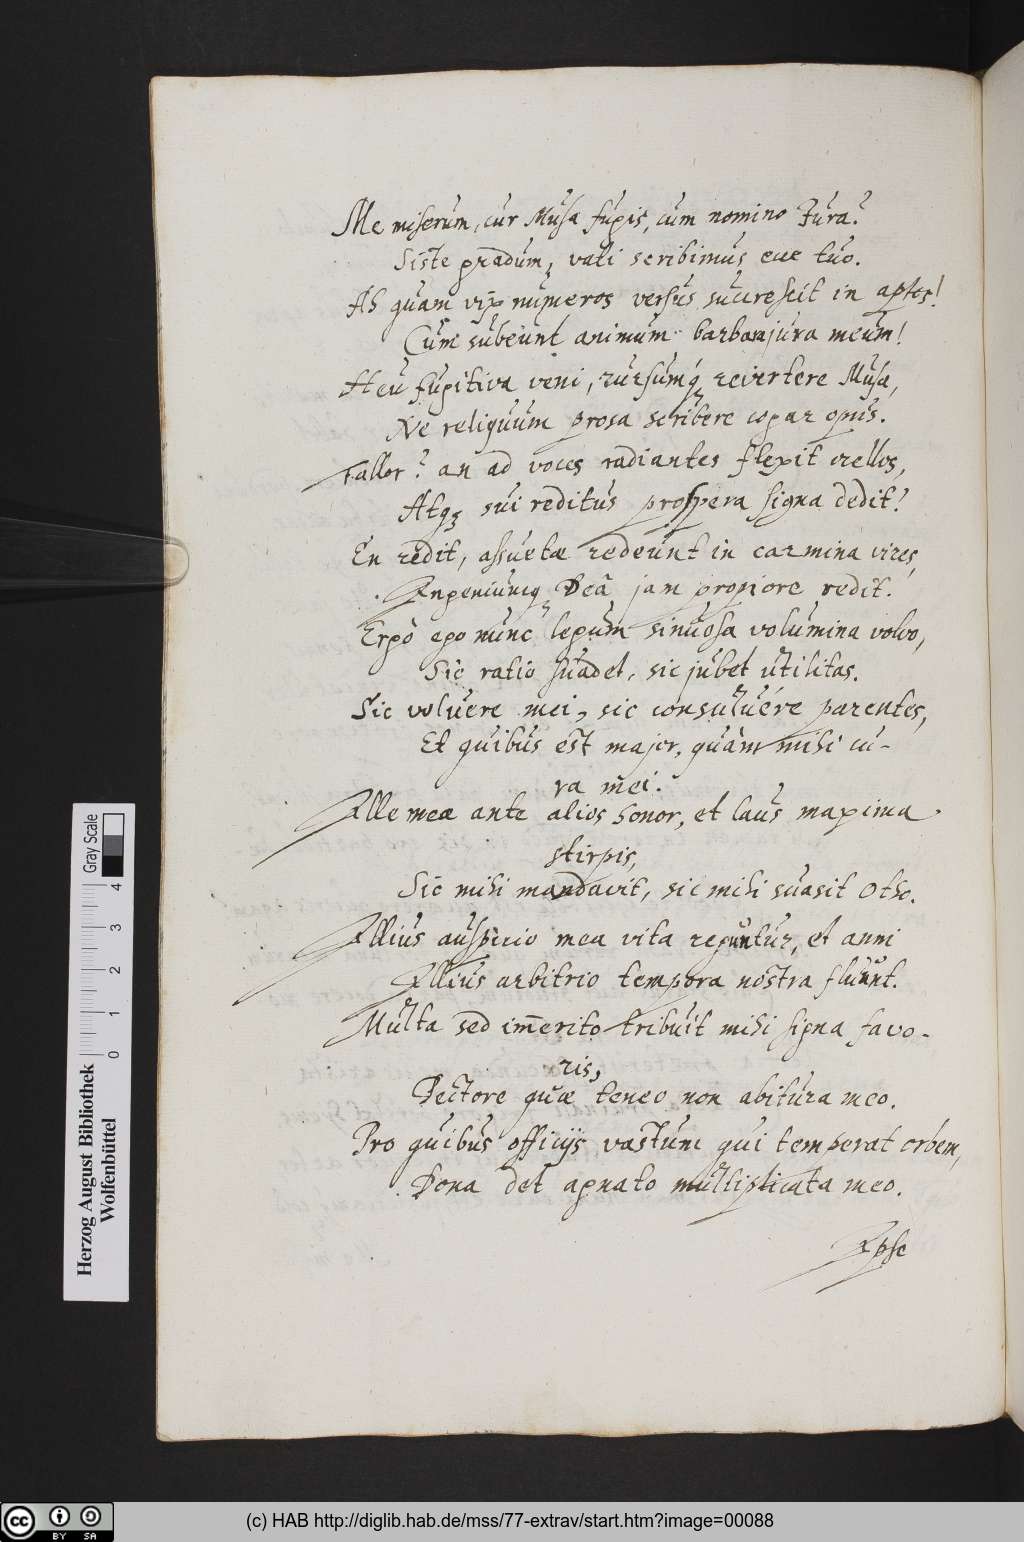 Me miserum, cur Musa fugis, cum nomino Jura?
Siste gradum, vati scribimus ecce tuo.
Ah quam vix numeros versus succrescit in aptos!
Cum subeunt animum barbara jura meum!
Heu fugitiva veni, rursumq́ revertere Musa,
Ne reliquum prosa scribere cogar opus.
Fallor? an ad voces radiantes flexit ocellos,
Atq; sui reditus prospera signa dedit?
En redit, assuetæ redeunt in carmina vires,
Ingeniumq; Deâ jam propiore redit.
Ergò ego nunc legum sinuosa volumina volvo,
Sic ratio suadet, sic jubet utilitas.
Sic voluere mei, sic consuluére parentes,
Et quibus est major, quàm mihi cu-
ra mei.
Ille meæ ante alios honor, et laus maxima
stirpis,
Sic mihi mandavit, sic mihi suasit Otho.
Illius auspicio mea vita reguntur, et anni
Illius arbitrio tempora nostra fluunt.
Multa sed im̄erito tribuit mihi signa favo-
ris,
Pectore quæ teneo non abitura meo.
Pro quibus officijs vastum qui temperat orbem,
Dona det agnato multiplicata meo.
Ipse
Herzog August Bibliothek
Wolfenbüttel
0 1 2 3 4
Gray Scale
cc BY SA
(c) HAB http://diglib.hab.de/mss/77-extrav/start.htm?image=00088